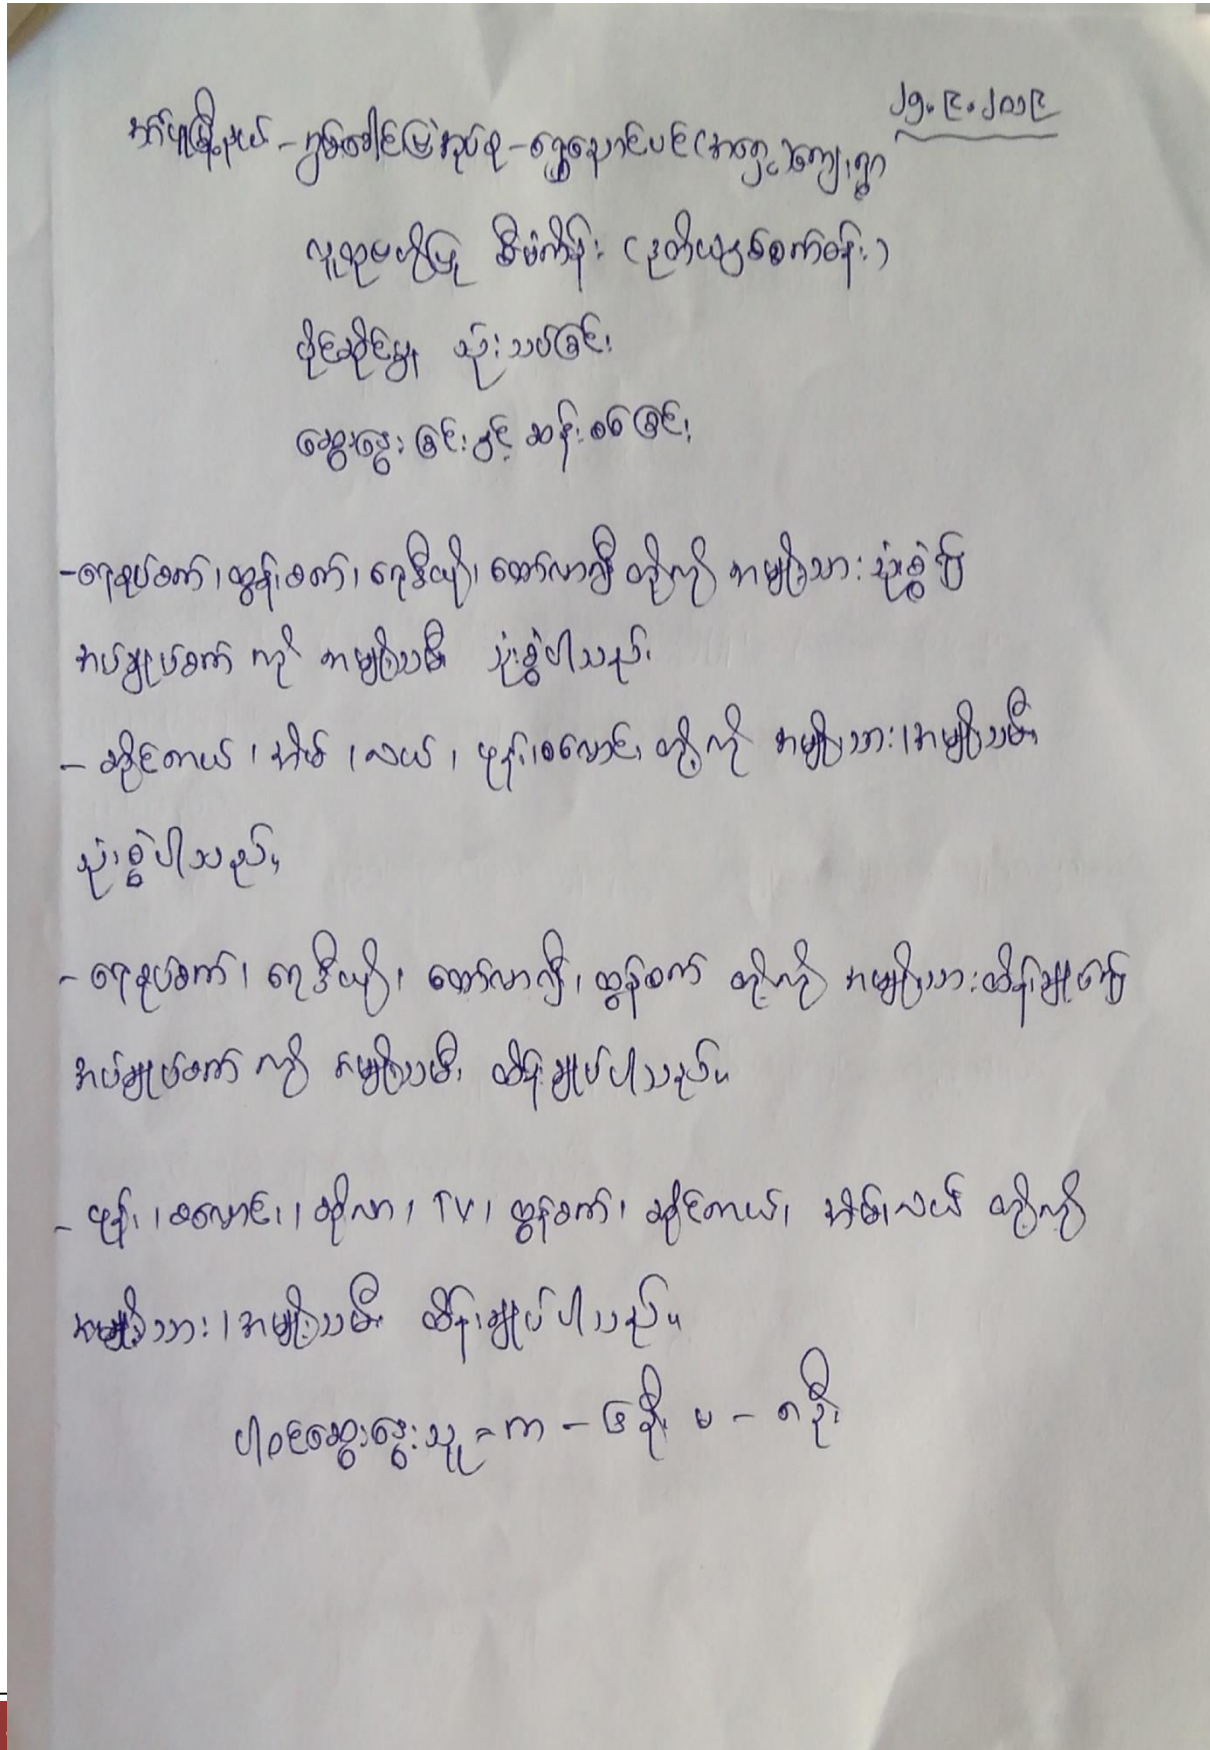 ၂၅.၉.၂၀၁၉
အုတ်ဖိုမြို့နယ် - ကျွမ်းခေါင်မြဲအုပ်စု - ရွှေညောင်ပင်(အရှေ့)ကျေးရွာ
လူထုဗဟိုပြု စီမံကိန်း (ဒုတိယနှစ်စက်ဝန်း)
ပိုင်ဆိုင်မှု၊ သုံးသပ်ခြင်း
ဆွေးနွေးခြင်းနှင့် ဆန်းစစ်ခြင်း
- ရေစုပ်စက်၊ ထွန်စက်၊ ရေဒီယို၊ ထော်လာဂျီ တို့ကို အမျိုးသား သုံးစွဲပြီး
အပ်ချုပ်စက် ကို အမျိုးသမီး သုံးစွဲပါသည်။
- ဆိုင်ကယ်၊ အိမ်၊ လယ်၊ ဖုန်း၊ စလောင်း တို့ကို အမျိုးသား၊ အမျိုးသမီး
သုံးစွဲပါသည်။
- ရေစုပ်စက်၊ ရေဒီယို၊ ထော်လာဂျီ၊ ထွန်စက် တို့ကို အမျိုးသား ထိန်းချုပ်ပြီး
အပ်ချုပ်စက် ကို အမျိုးသမီး ထိန်းချုပ်ပါသည်။
- ဖုန်း၊ စလောင်း၊ ဆိုလာ၊ TV၊ ထွန်စက်၊ ဆိုင်ကယ်၊ အိမ်၊ လယ် တို့ကို
အမျိုးသား၊ အမျိုးသမီး ထိန်းချုပ်ပါသည်။
ပါဝင်ဆွေးနွေးသူ = ကာ - ၆ဦး မ - ၈ဦး